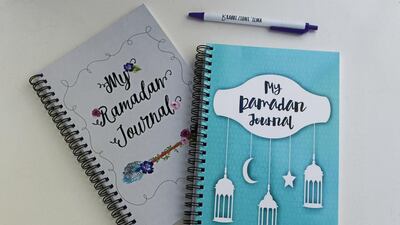 My
Ramadan
Journal
My
Ramadan
Journal